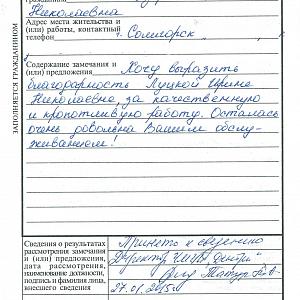 Николаевна
Адрес места жительства и
(или) работы, контактный
телефон г. Солигорск
ЗАПОЛНЯЕТСЯ ГРАЖДАНИНОМ
Содержание замечания и
(или) предложения Хочу выразить
благодарность Луцкой Ирине
Николаевне за качественную
и кропотливую работу. Осталась
очень довольна Вашим обслу-
живанием!
Сведения о результатах
рассмотрения замечания
и (или) предложения,
дата рассмотрения,
наименование должности,
подпись и фамилия лица,
внесшего сведения
Принято к сведению
Директор
27.01.2015г.